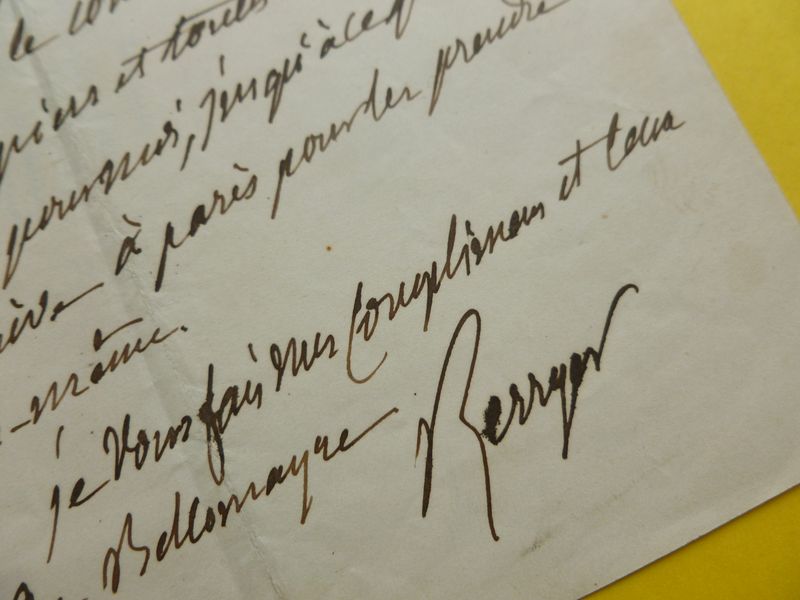 le
et toutes
poursuivi, jusqu'à ce q
à paris pour les prendre
-même.
je vous fais mes Complimens et tous
Bellomayre Berryer